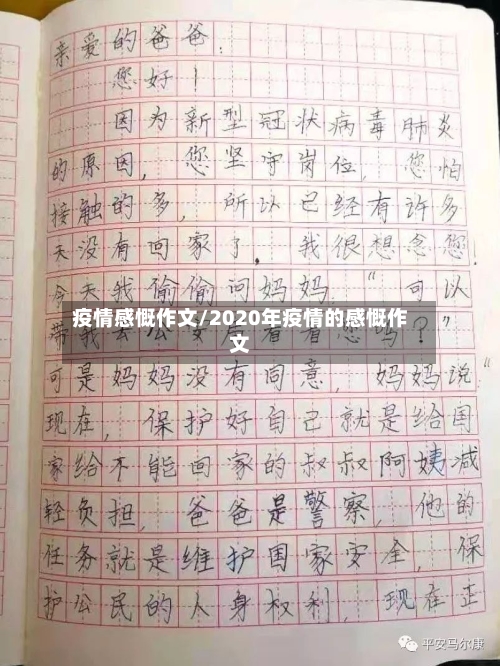 亲爱的爸爸：
您好！
因为新型冠状病毒肺炎
的原因，您坚守岗位，您怕
接触的多，所以已经有许多
天没有回家了，我很想念您！
今天我偷偷问妈妈，“可以
疫情感慨作文/2020年疫情的感慨作
文
带我去公安局看看您吗？”
可是妈妈没有同意，妈妈说
现在，保护好自己就是给国
家给不能回家的叔叔阿姨减
轻负担，爸爸是警察，他的
任务就是维护国家安全，保
护公民的人身权利，现在正
平安马尔康